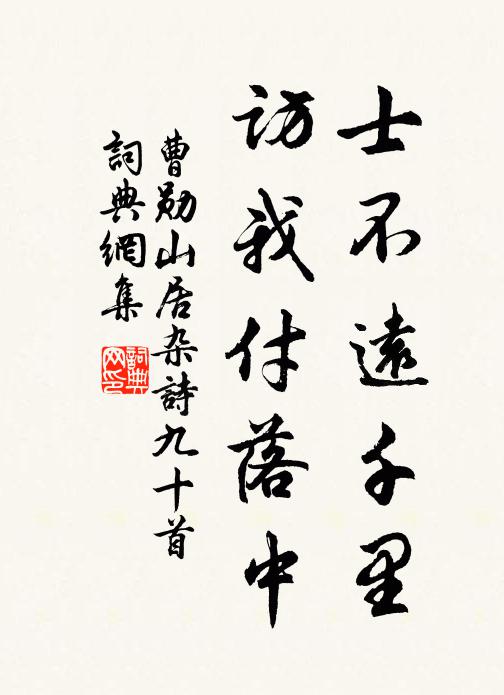 士不遠千里
訪我付落中
曹勛山居杂詩九十首
詞典網集
詞典网印